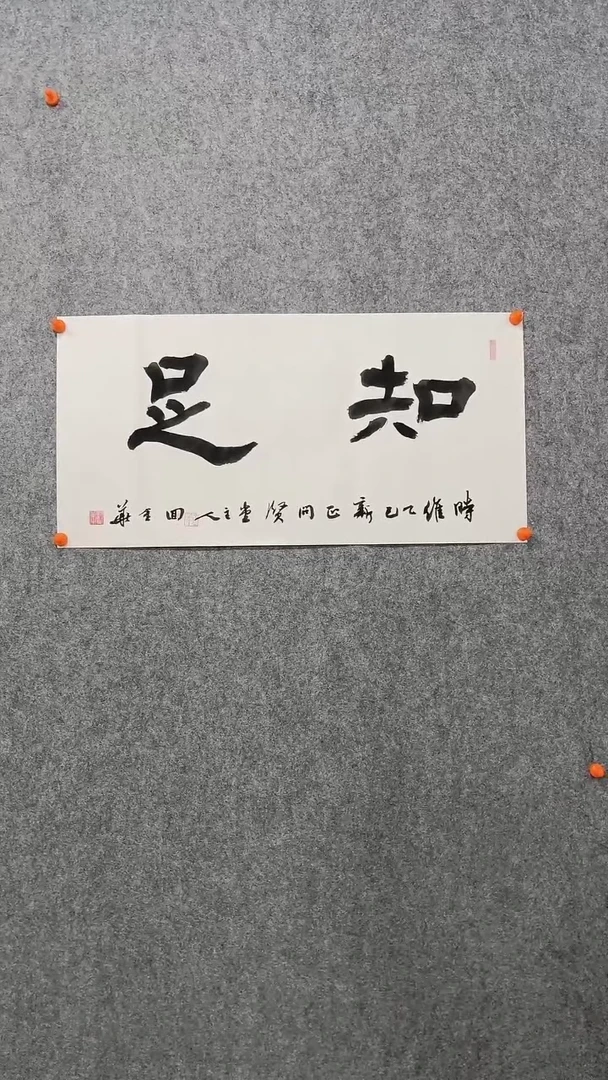 知足
時維乙巳新正問賢堂主人田玉華